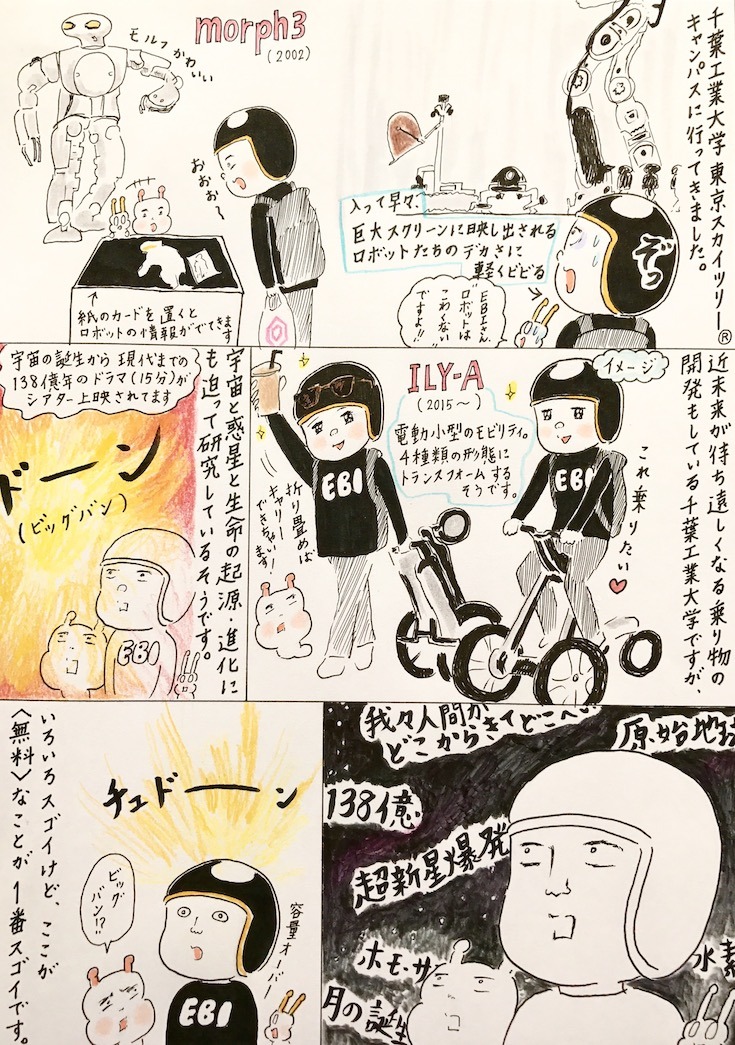 千葉工業大学 東京スカイツリー®
キャンパスに行ってきました。
入って早々、
巨大スクリーンに映し出される
ロボットたちのデカさに
軽くビビる
ぞっ
EBIさん
ロボットは
こわくない
ですよ!!
morph3
(2002)
モルフかわいい
おぉぉ〜
↑
紙のカードを置くと
ロボットの情報がでてきます
近未来が待ち遠しくなる乗り物の
開発もしている千葉工業大学ですが、
イメージ
これ乗りたい♥
ILY-A
(2015〜)
電動小型のモビリティ。
4種類の形態に
トランスフォームする
そうです。
EBI
EBI
折り畳めば
キャリー
できちゃいます!
宇宙と惑星と生命の起源・進化に
も迫って研究しているそうです。
宇宙の誕生から現代までの
138億年のドラマ(15分)が
シアター上映されてます
ドーン
(ビッグバン)
EBI
我々人間が
どこからきてどこへ
原始地球
138億
超新星爆発
ホモ・サ
水素
月の誕生
チュドーン
ビッグ
バン!?
容量オーバー
EBI
いろいろスゴイけど、ここが
〈無料〉なことが1番スゴイです。